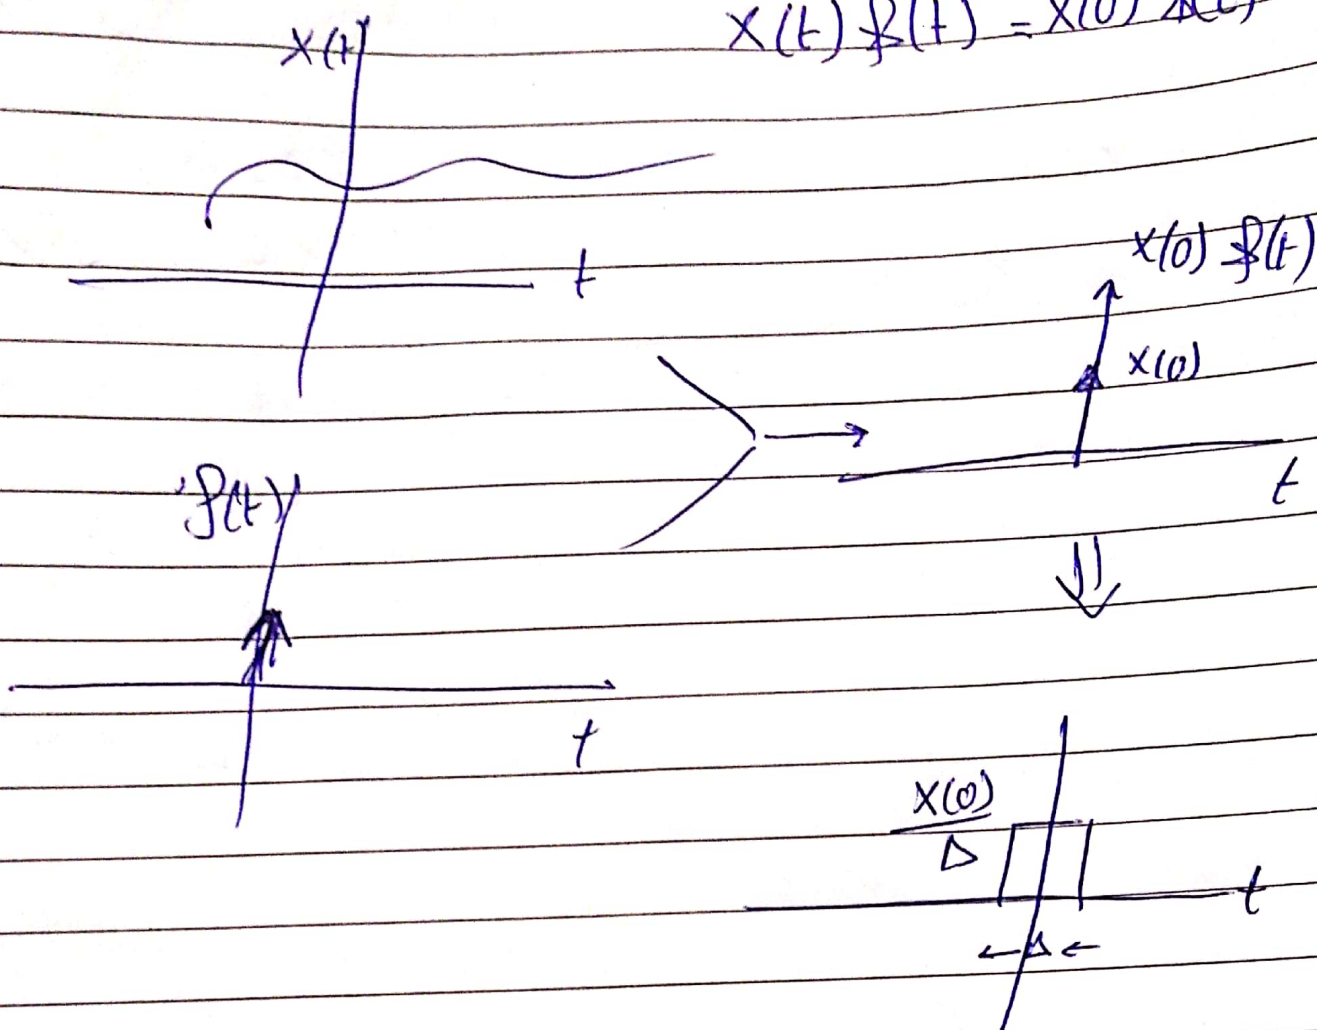 X(t)
X(t) δ(t) = X(0) δ(t)
t
X(0) δ(t)
X(0)
t
δ(t)
t
X(0)
Δ
t
Δ